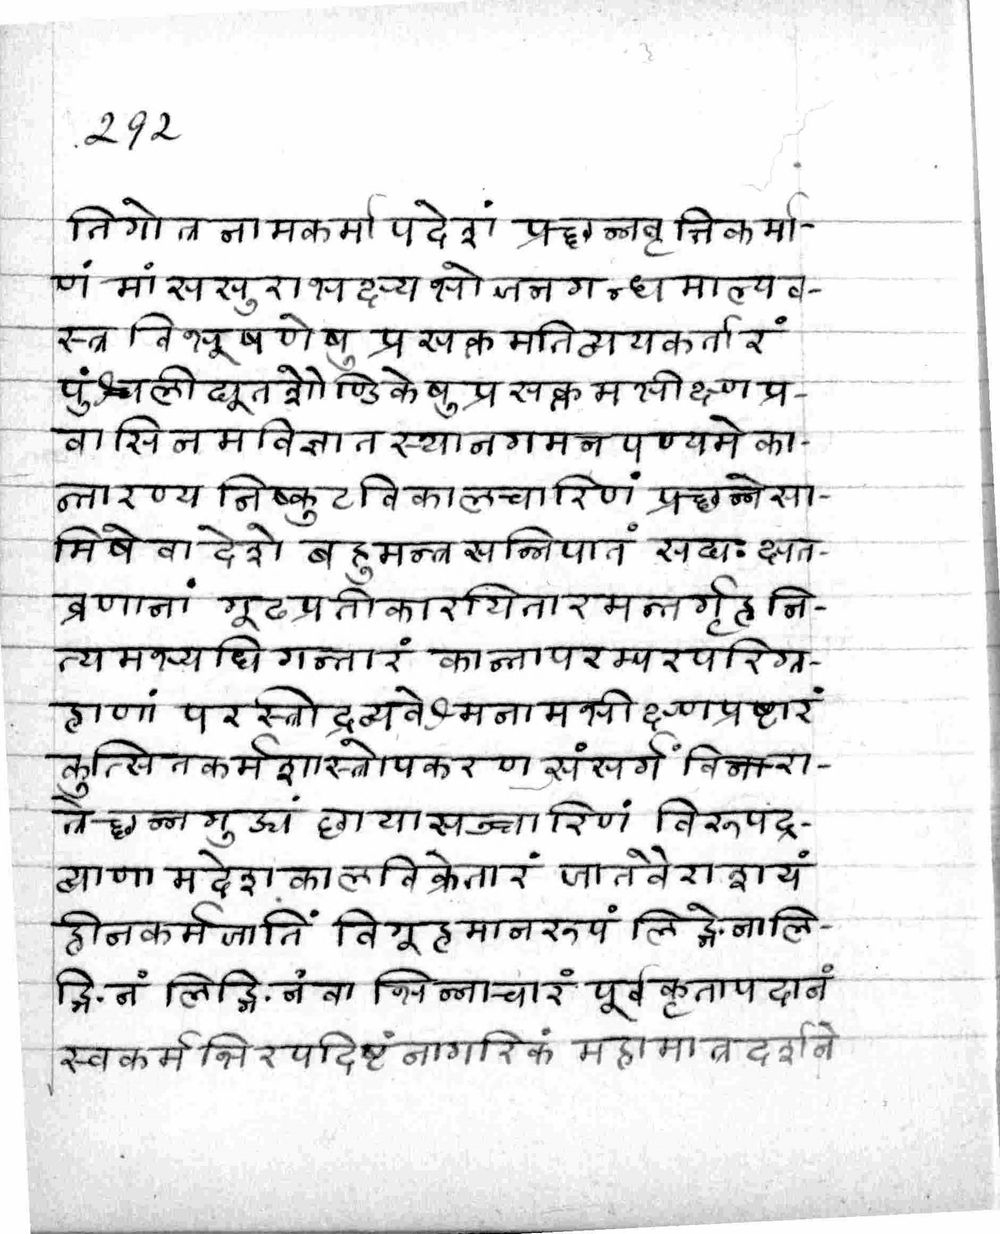 २९२
तिगोत्रनामकर्मापदेशं प्रच्छन्नवृत्तिकर्मा-
णं मांससुराभक्ष्यभोजनगन्धमाल्यव-
स्त्रविभूषणेषु प्रसक्तमतिव्ययकर्तारं
पुंश्चलीद्यूतशौण्डिकेषु प्रसक्तमभीक्ष्णप्र-
वासिनमविज्ञातस्थानगमनपण्यमेका-
न्तारण्यनिष्कुटविकालचारिणं प्रच्छन्ने सा-
मिषे वा देशे बहुमन्त्रसन्निपातं सद्यःक्षत-
व्रणानां गूढप्रतीकारयितारमन्तर्गृहनि-
त्यमभ्यधिगन्तारं कान्तापरम्परपरिग्र-
हाणां परस्त्रीद्रव्यवेश्मनामभीक्ष्णप्रष्टारं
कुत्सितकर्मशास्त्रोपकरणसंसर्गं विरा-
त्रेच्छन्नकुड्यं छायासञ्चारिणं विरूपद्र-
व्याणामदेशकालविक्रेतारं जातवैराशयं
हीनकर्मजातिं विगूहमानरूपं लिङ्गेनालि-
ङ्गिनं लिङ्गिनं वा भिन्नाचारं पूर्वकृतापदानं
स्वकर्मभिरपदिष्टं नागरिकं महामात्रदर्शने